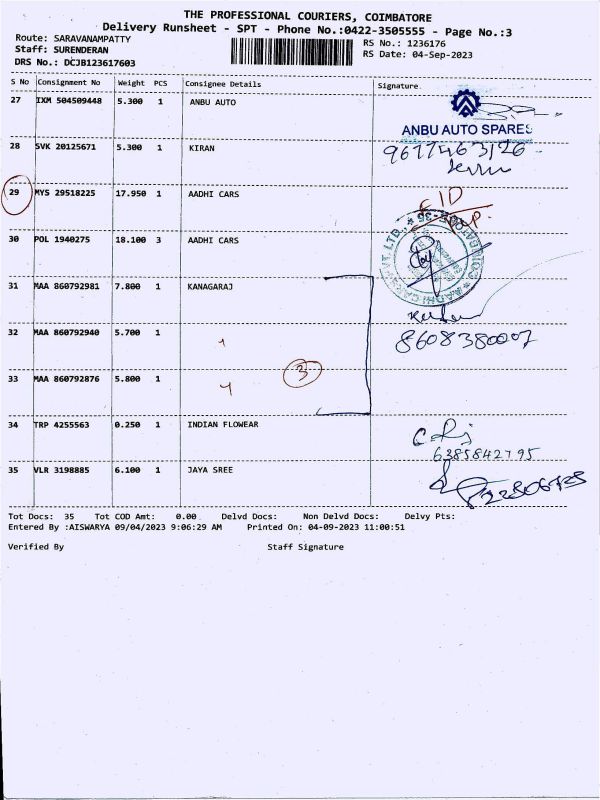 THE PROFESSIONAL COURIERS, COIMBATORE
Delivery Runsheet - SPT - Phone No.:0422-3505555 - Page No.:3
Route: SARAVANAMPATTY
RS No.: 1236176
Staff: SURENDERAN
RS Date: 04-Sep-2023
DRS No.: DCJB123617603
S No Consignment No Weight PCS Consignee Details Signature
27 IXM 504509448 5.300 1 ANBU AUTO
ANBU AUTO SPARES
28 SVK 20125671 5.300 1 KIRAN
9677463126
29 MYS 29518225 17.950 1 AADHI CARS
30 POL 1940275 18.100 3 AADHI CARS
31 MAA 860792981 7.800 1 KANAGARAJ
32 MAA 860792940 5.700 1
8608380007
33 MAA 860792876 5.800 1
3
34 TRP 4255563 0.250 1 INDIAN FLOWEAR
6385842795
35 VLR 3198885 6.100 1 JAYA SREE
Tot Docs: 35 Tot COD Amt: 0.00 Delvd Docs: Non Delvd Docs: Delvy Pts:
Entered By :AISWARYA 09/04/2023 9:06:29 AM Printed On: 04-09-2023 11:00:51
Verified By Staff Signature